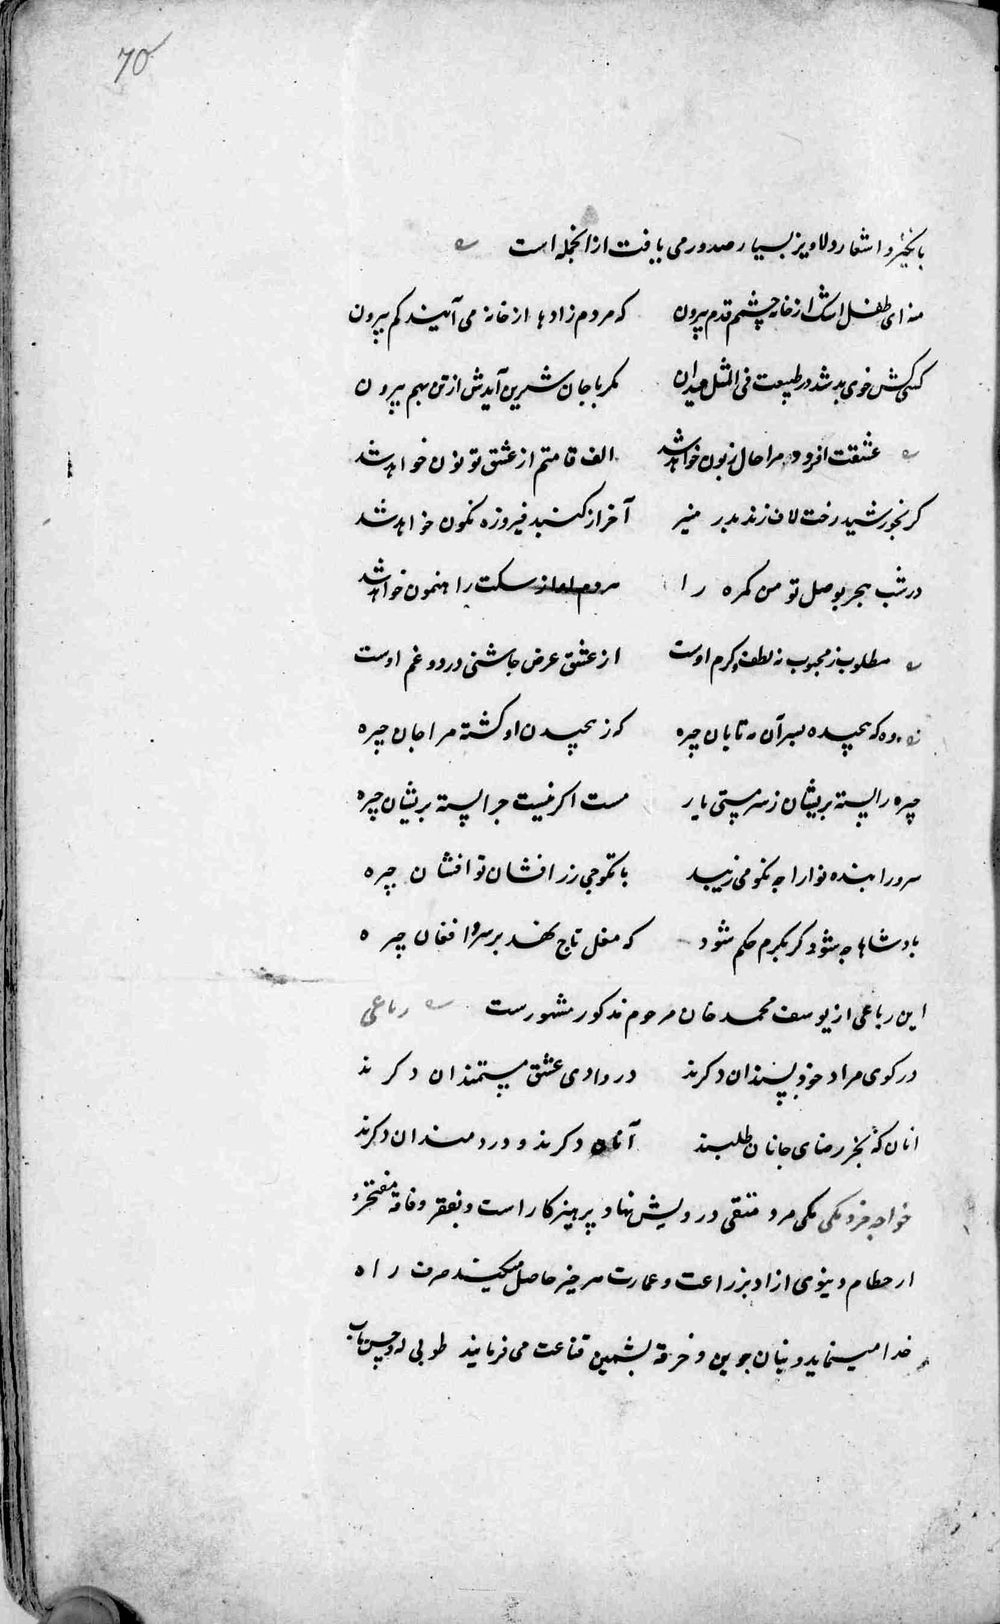 70
بانگیز و اشعار دلاویز بسیار صدور می یافت از انجمله است
منه ای طفل اشک از خانه چشم قدم بیرون که مردم زادها از خانه می آیند کم بیرون
کسی کش خوی بد شد در طبیعت فی المثل میدان مگر با جان شیرین آیدش از تن بهم بیرون
عشقت افزود مرا حال زبون خواهد شد الف قامتم از عشق تو نون خواهد شد
گر بخورشید رخت لاف زند بدر منیر آخر از گنبد فیروزه نگون خواهد شد
در شب هجر بوصل تو من گمره را سکت راهنمون خواهد شد
مطلوب ز محبوب نه لطف و کرم اوست از عشق عرض چاشنی درد و غم اوست
وه که پیچیده بسر آن مه تابان چیره که ز پیچیدن او گشته مرا جان چیره
چیره را بسته پریشان ز سر مستی یار مست اگر نیست چرا بسته پریشان چیره
سرورا بنده نوارا چه نکو می زیبد با زر افشان تو افشان چیره
بادشاها چه شود گر بکرم حکم شود که مغل تاج نهد بر سر و افغان چیره
این رباعی از یوسف محمد خان مرحوم مذکور مشهورست رباعی
در کوی مراد خود پسندان دگرند در وادی عشق مستمندان دگرند
انان که بجز رضای جانان طلبند آنان دگرند و دردمندان دگرند
خواجه مکی مرد متقی درویش نهاد پرهیزکار است و بفقر و فاقه مفتخر و
از حطام دنیوی ازاد بزراعت و عمارت هر چیز حاصل میکند صرف راه
خدا مینماید و بنان جوین و خرقه پشمین قناعت می فرمایند طوبی له و حسن ماب